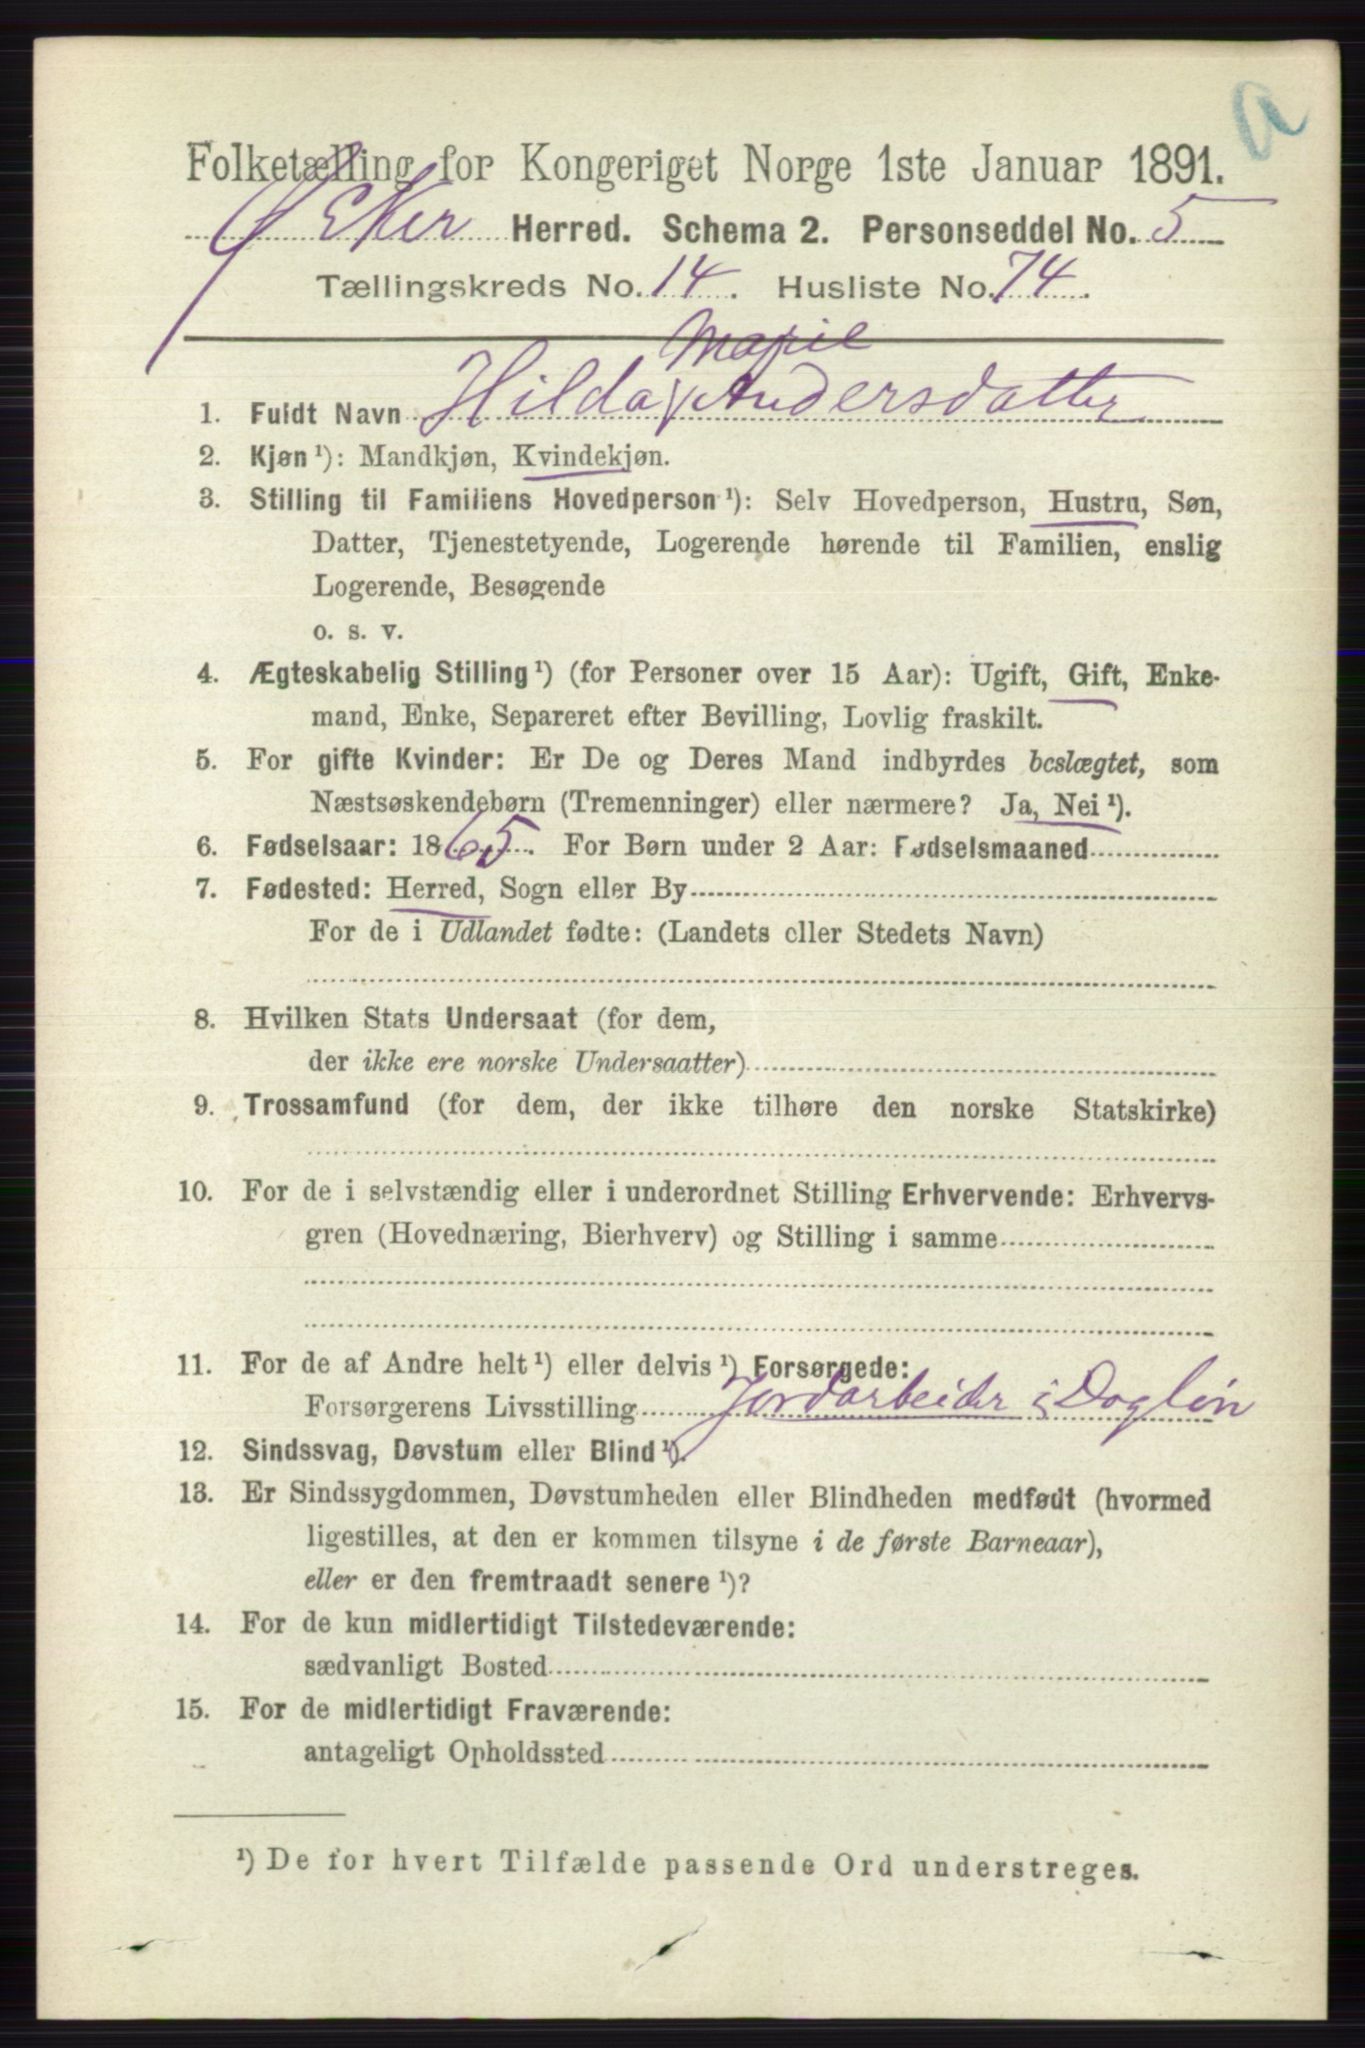 a
Folketælling for Kongeriget Norge 1ste Januar 1891.
Ø Eker Herred. Schema 2. Personseddel No. 5
Tællingskreds No. 14. Husliste No. 74.
Marie
1. Fuldt Navn Hilda Andersdatter
2. Kjøn ¹): Mandkjøn, Kvindekjøn.
3. Stilling til Familiens Hovedperson ¹): Selv Hovedperson, Hustru, Søn,
Datter, Tjenestetyende, Logerende hørende til Familien, enslig
Logerende, Besøgende
o. s. v.
4. Ægteskabelig Stilling ¹) (for Personer over 15 Aar): Ugift, Gift, Enke-
mand, Enke, Separeret efter Bevilling, Lovlig fraskilt.
5. For gifte Kvinder: Er De og Deres Mand indbyrdes beslægtet, som
Næstsøskendebørn (Tremenninger) eller nærmere? Ja, Nei ¹).
6. Fødselsaar: 1865. For Børn under 2 Aar: Fødselsmaaned
7. Fødested: Herred, Sogn eller By
For de i Udlandet fødte: (Landets eller Stedets Navn)
8. Hvilken Stats Undersaat (for dem,
der ikke ere norske Undersaatter)
9. Trossamfund (for dem, der ikke tilhøre den norske Statskirke)
10. For de i selvstændig eller i underordnet Stilling Erhvervende: Erhvervs-
gren (Hovednæring, Bierhverv) og Stilling i samme
11. For de af Andre helt ¹) eller delvis ¹) Forsørgede:
Forsørgerens Livsstilling Jordarbeider i Dagløn
12. Sindssvag, Døvstum eller Blind ¹).
13. Er Sindssygdommen, Døvstumheden eller Blindheden medfødt (hvormed
ligestilles, at den er kommen tilsyne i de første Barneaar),
eller er den fremtraadt senere ¹)?
14. For de kun midlertidigt Tilstedeværende:
sædvanligt Bosted
15. For de midlertidigt Fraværende:
antageligt Opholdssted
¹) De for hvert Tilfælde passende Ord understreges.